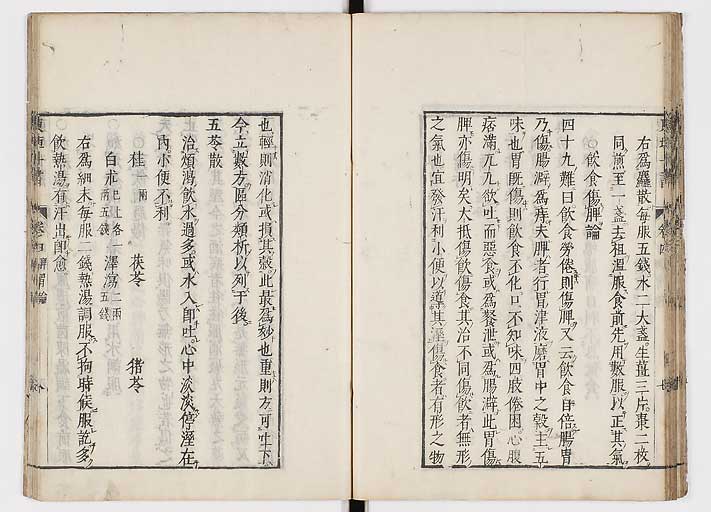 右爲麤散每服五錢水二大盞生薑三片棗二枚
同煎至一盞去柤溫服食前先用數服以正其氣
飮食傷脾論
四十九難曰飮食勞倦則傷脾又云飮食自倍腸胃
乃傷腸澼爲痔夫脾者行胃津液磨胃中之穀主五
味也胃旣傷則飮食不化口不知味四肢倦困心腹
痞滿兀兀欲吐而惡食或爲飱泄或爲腸澼此胃傷
脾亦傷明矣大抵傷飮傷食其治不同傷飮者無形
之氣也宜發汗利小便以導其溼傷食者有形之物
也輕則消化或損其穀此最爲妙也重則方可吐下
今立數方區分類析以列于後
五苓散
治煩渴飮水過多或水入卽吐心中淡淡停溼在
內小便不利
桂一兩 茯苓 猪苓
白朮已上各一兩五錢 澤瀉二兩五錢
右爲細末每服二錢熱湯調服不拘時候服訖多
飮熱湯有汗出卽愈
卷四 脾胃論